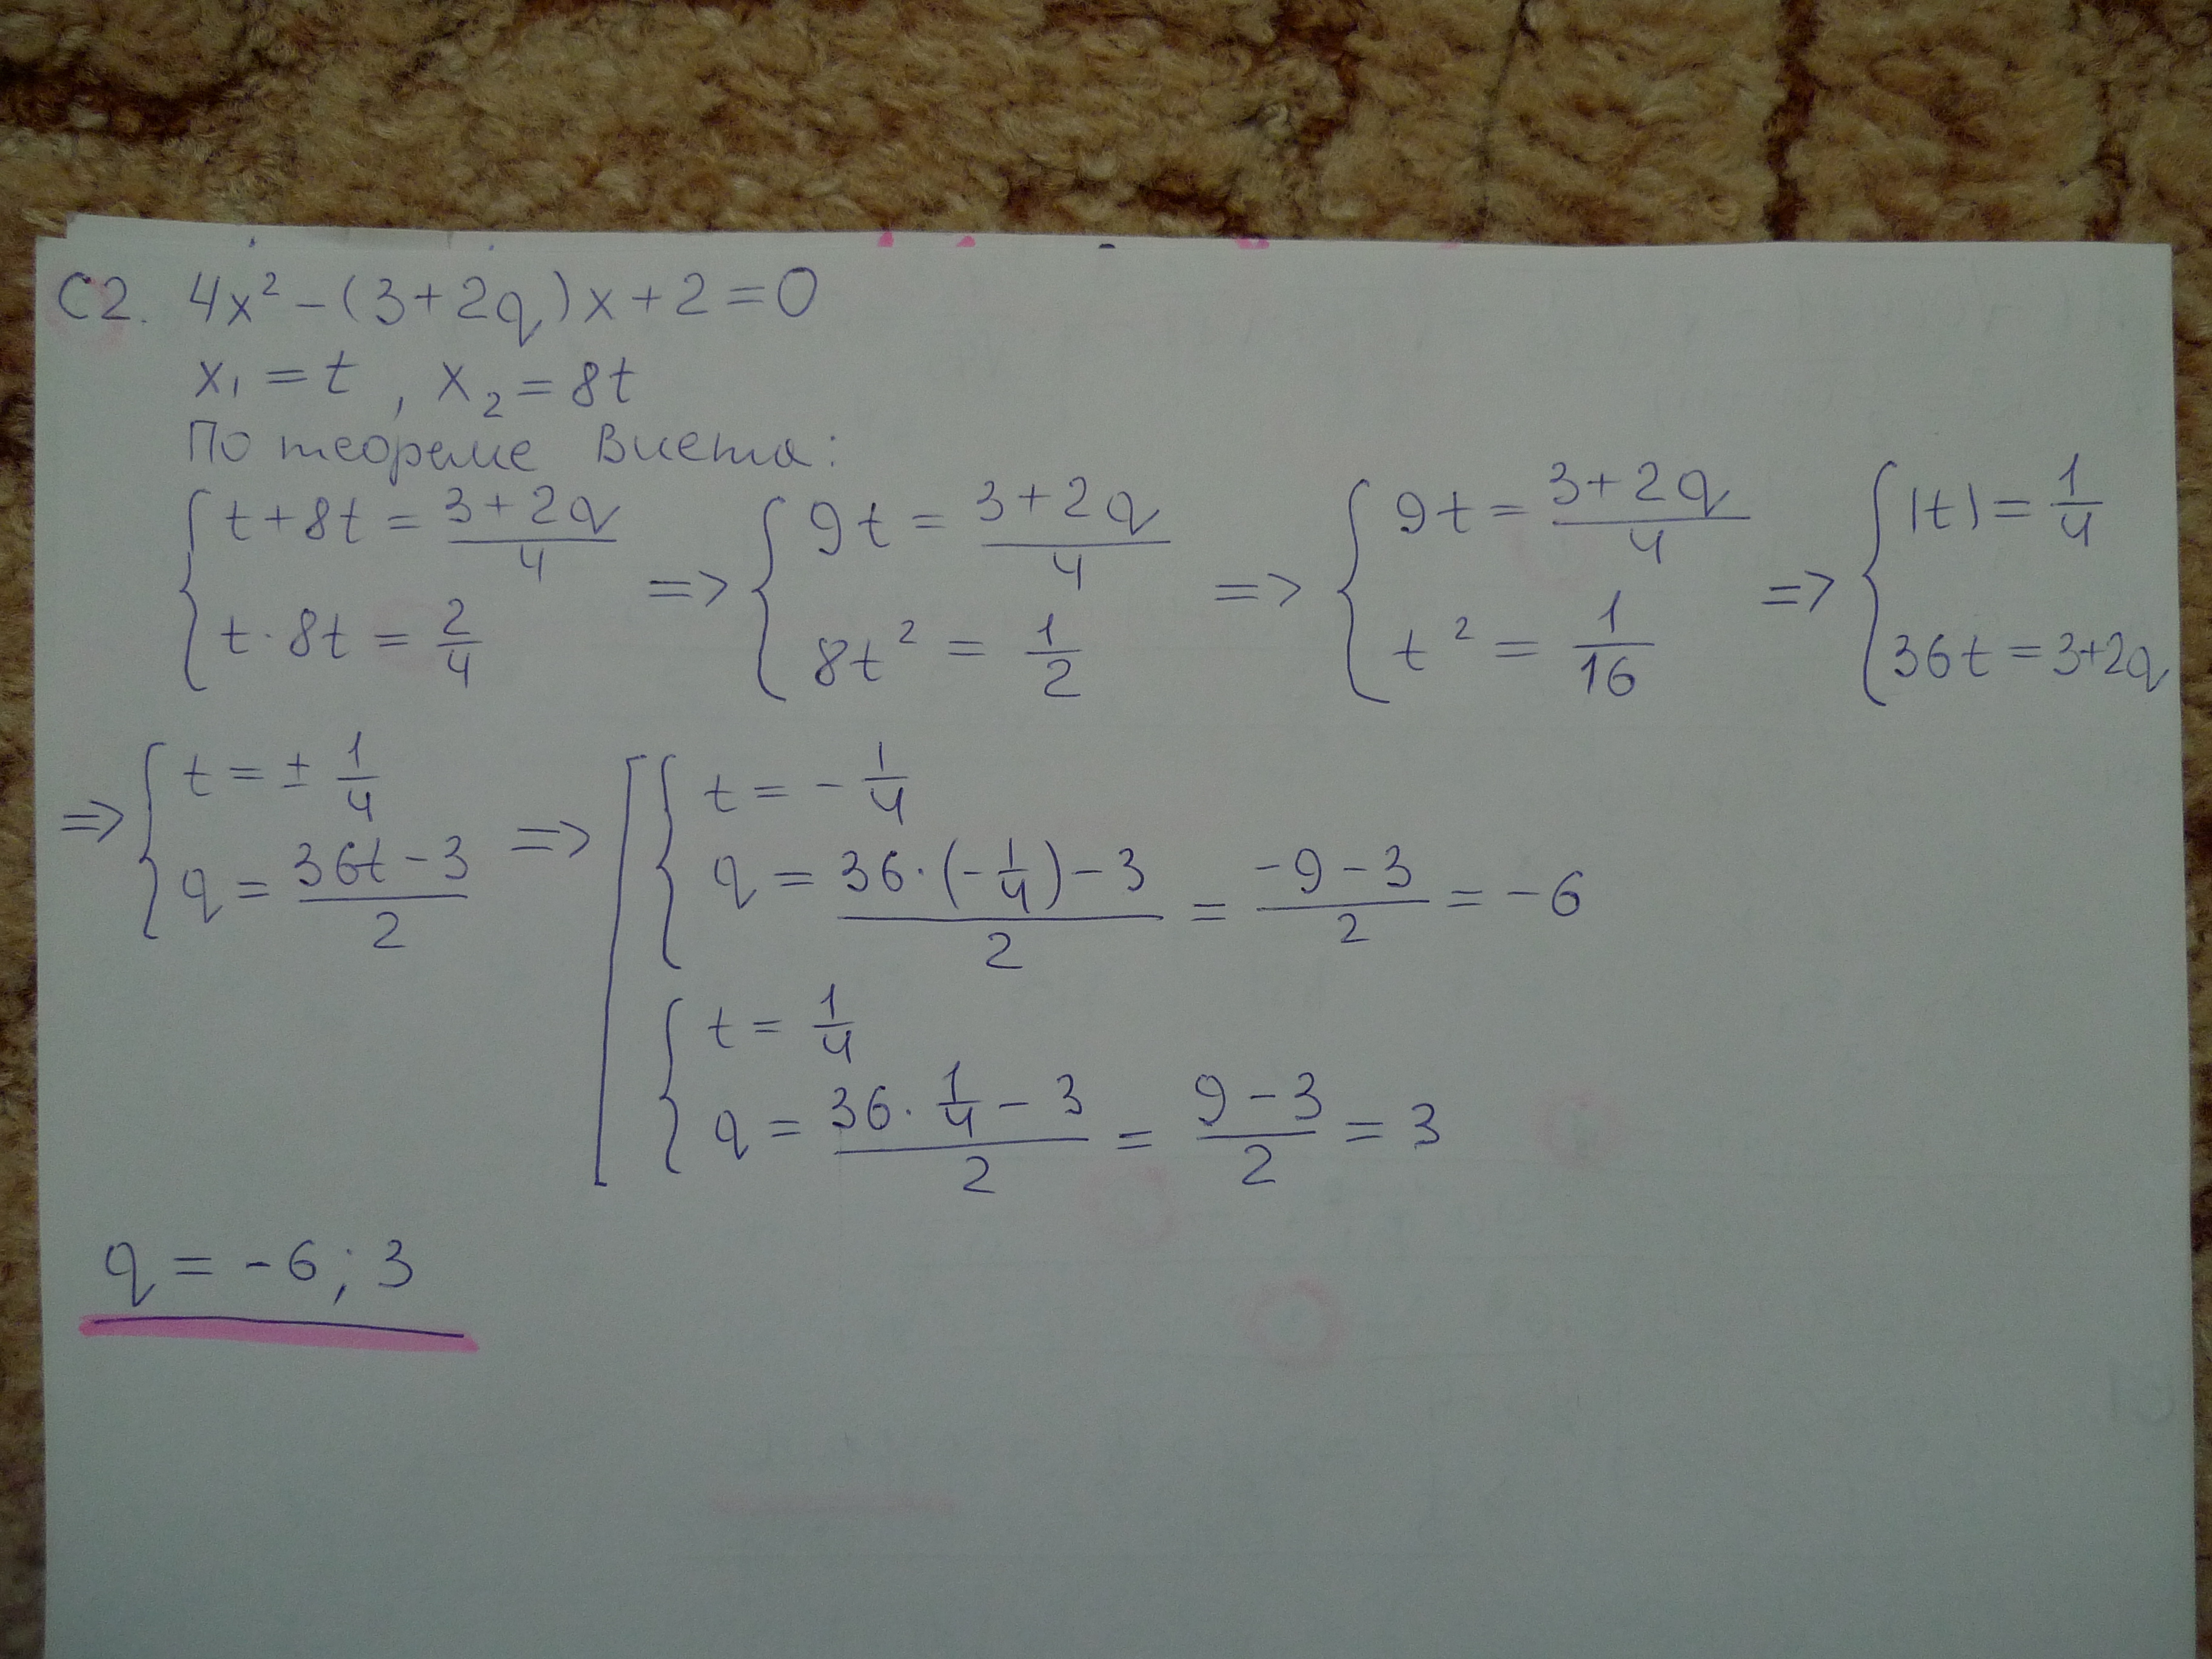 С2. 4x² - (3+2q)x + 2 = 0
x₁ = t, x₂ = 8t
По теореме Виета:
{ t+8t = (3+2q)/4 ; t·8t = 2/4 => { 9t = (3+2q)/4 ; 8t² = 1/2 => { 9t = (3+2q)/4 ; t² = 1/16 => { |t| = 1/4 ; 36t = 3+2q
=> { t = ± 1/4 ; q = (36t-3)/2 => [ { t = -1/4 ; q = (36·(-1/4)-3)/2 = (-9-3)/2 = -6
{ t = 1/4 ; q = (36·1/4-3)/2 = (9-3)/2 = 3
q = -6; 3